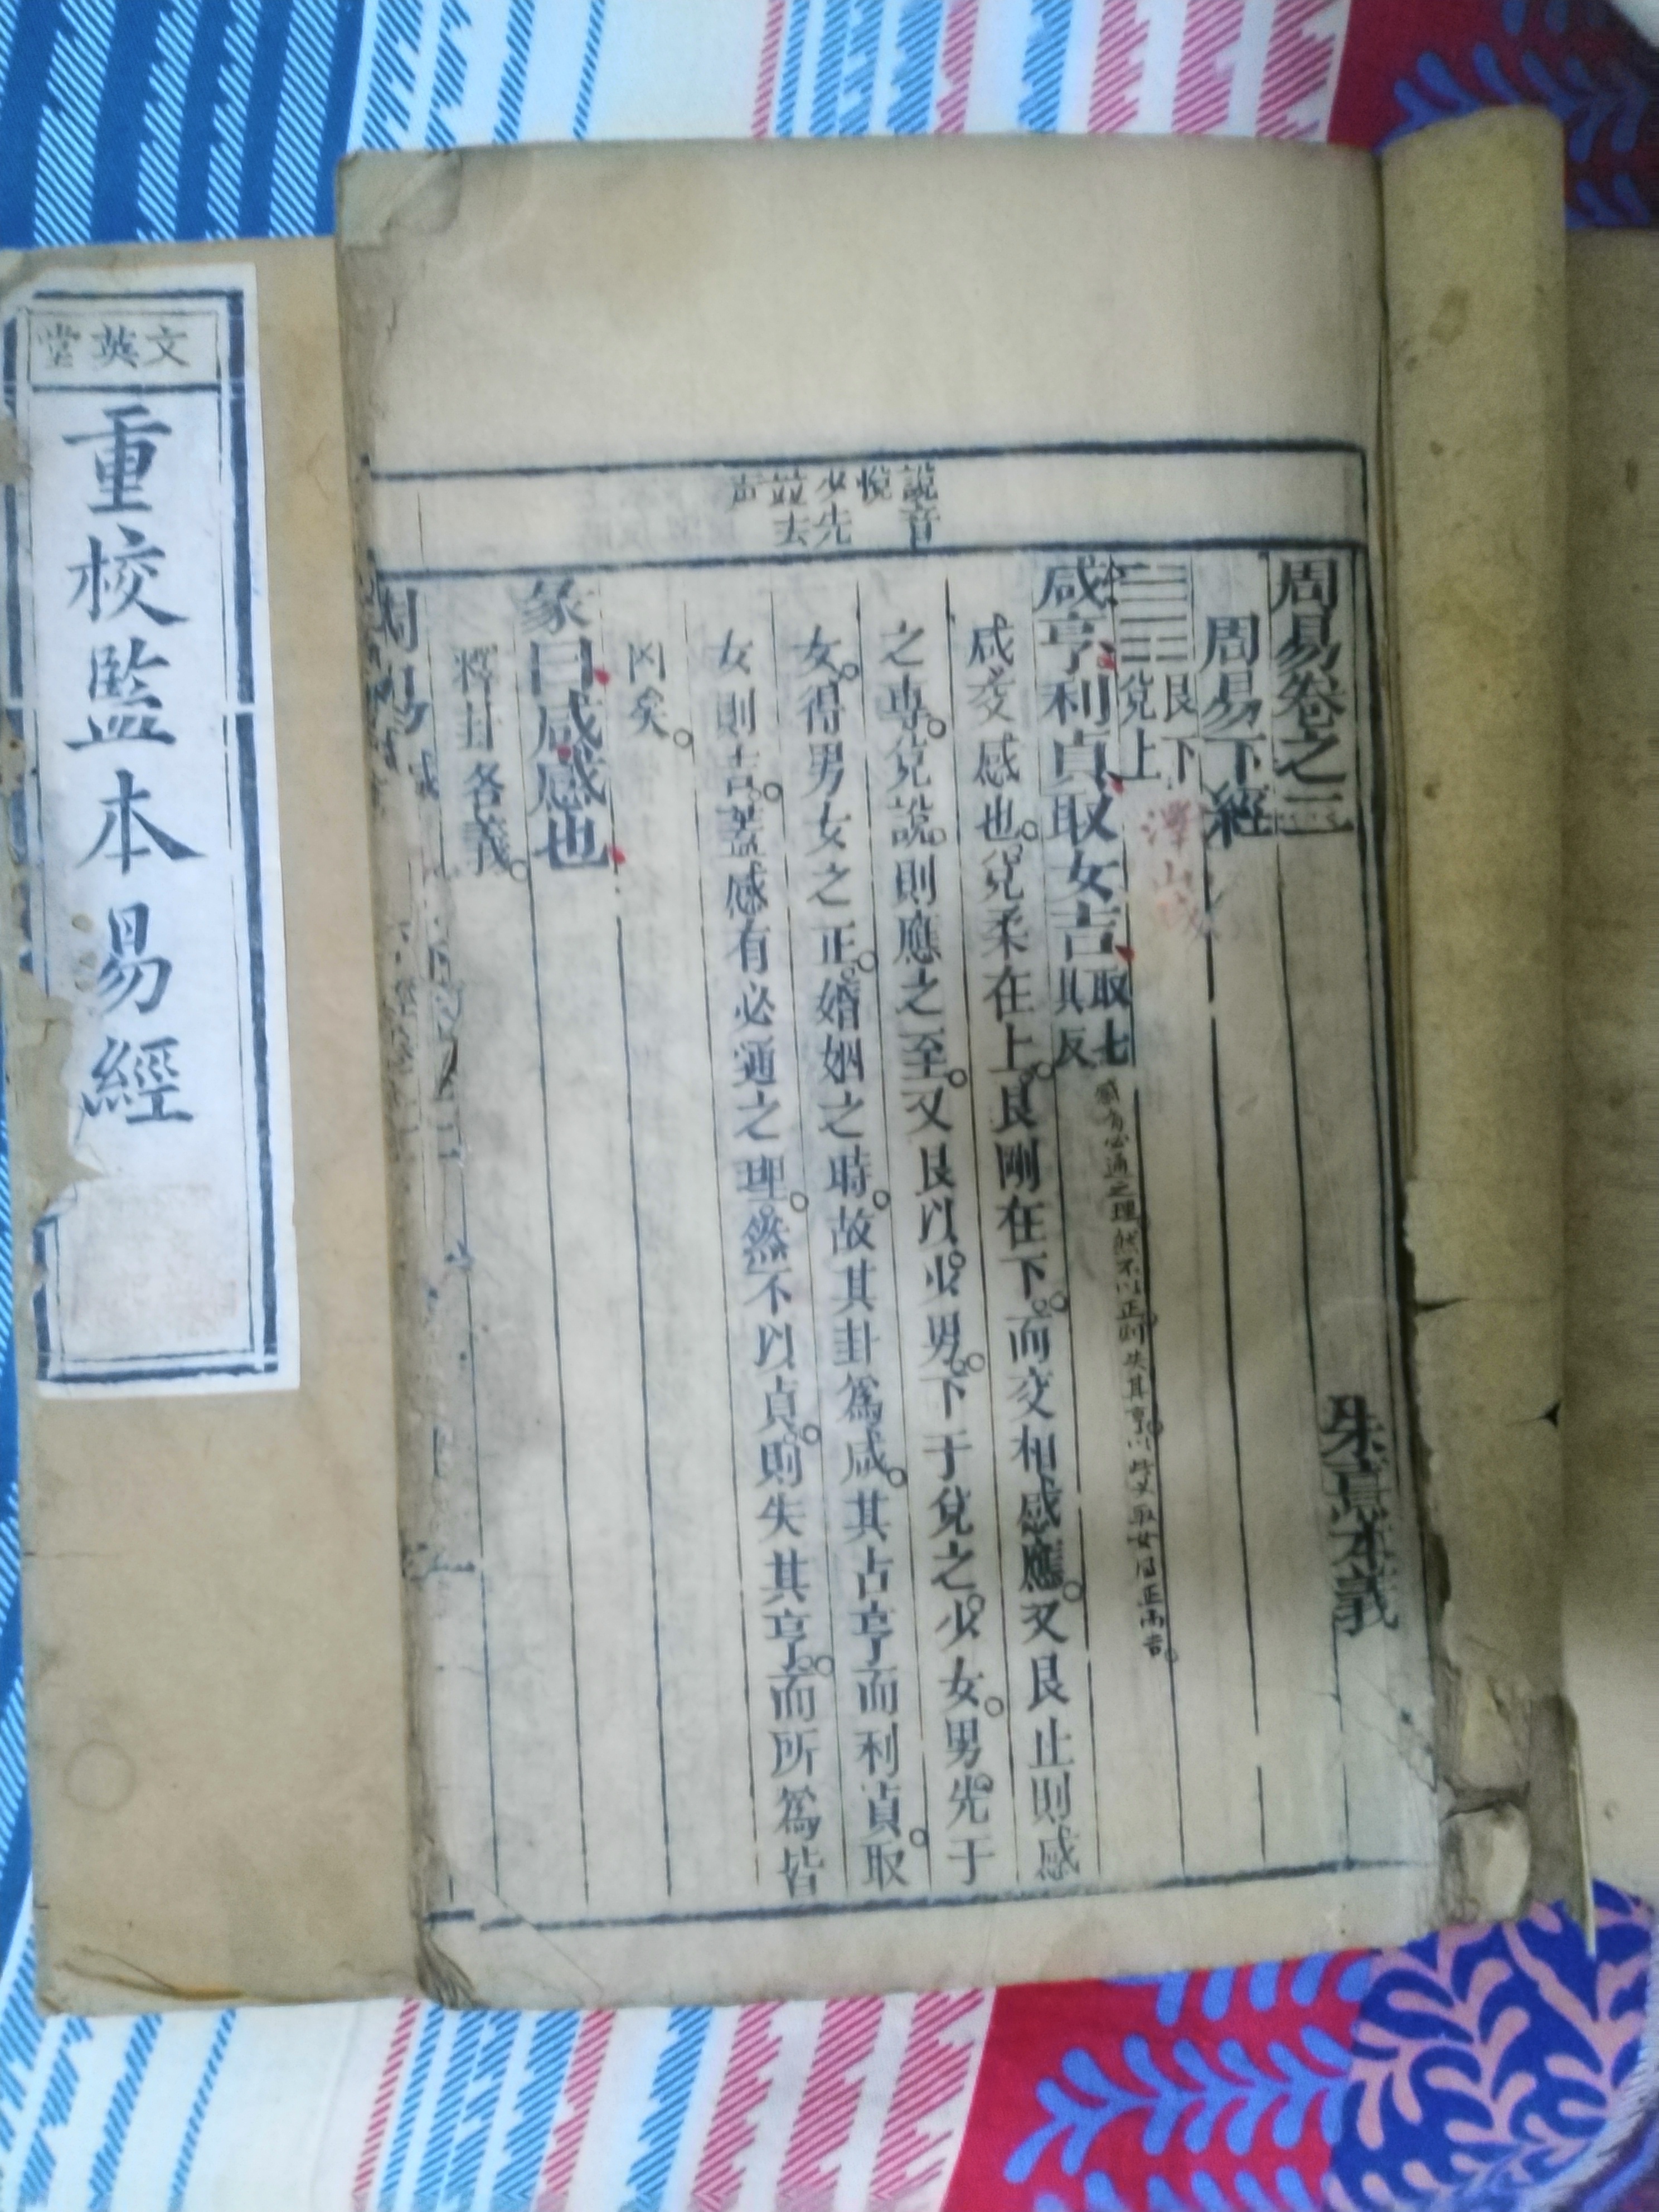 周易卷之二
朱熹本義
周易下經
艮下
兌上
澤山咸
咸亨利貞取女吉
取七
具反
感有必通之理然不以正則失其亨以此取女得正而吉
咸交感也兌柔在上艮剛在下而交相感應又艮止則感
之專兌說則應之至又艮以少男下于兌之少女男先于
女得男女之正婚姻之時故其卦為咸其占亨而利貞取
女則吉蓋感有必通之理然不以貞則失其亨而所為皆
凶矣
彖曰咸感也
釋卦名義
說音
悅
少先
並去
声
文英堂
重校監本易經